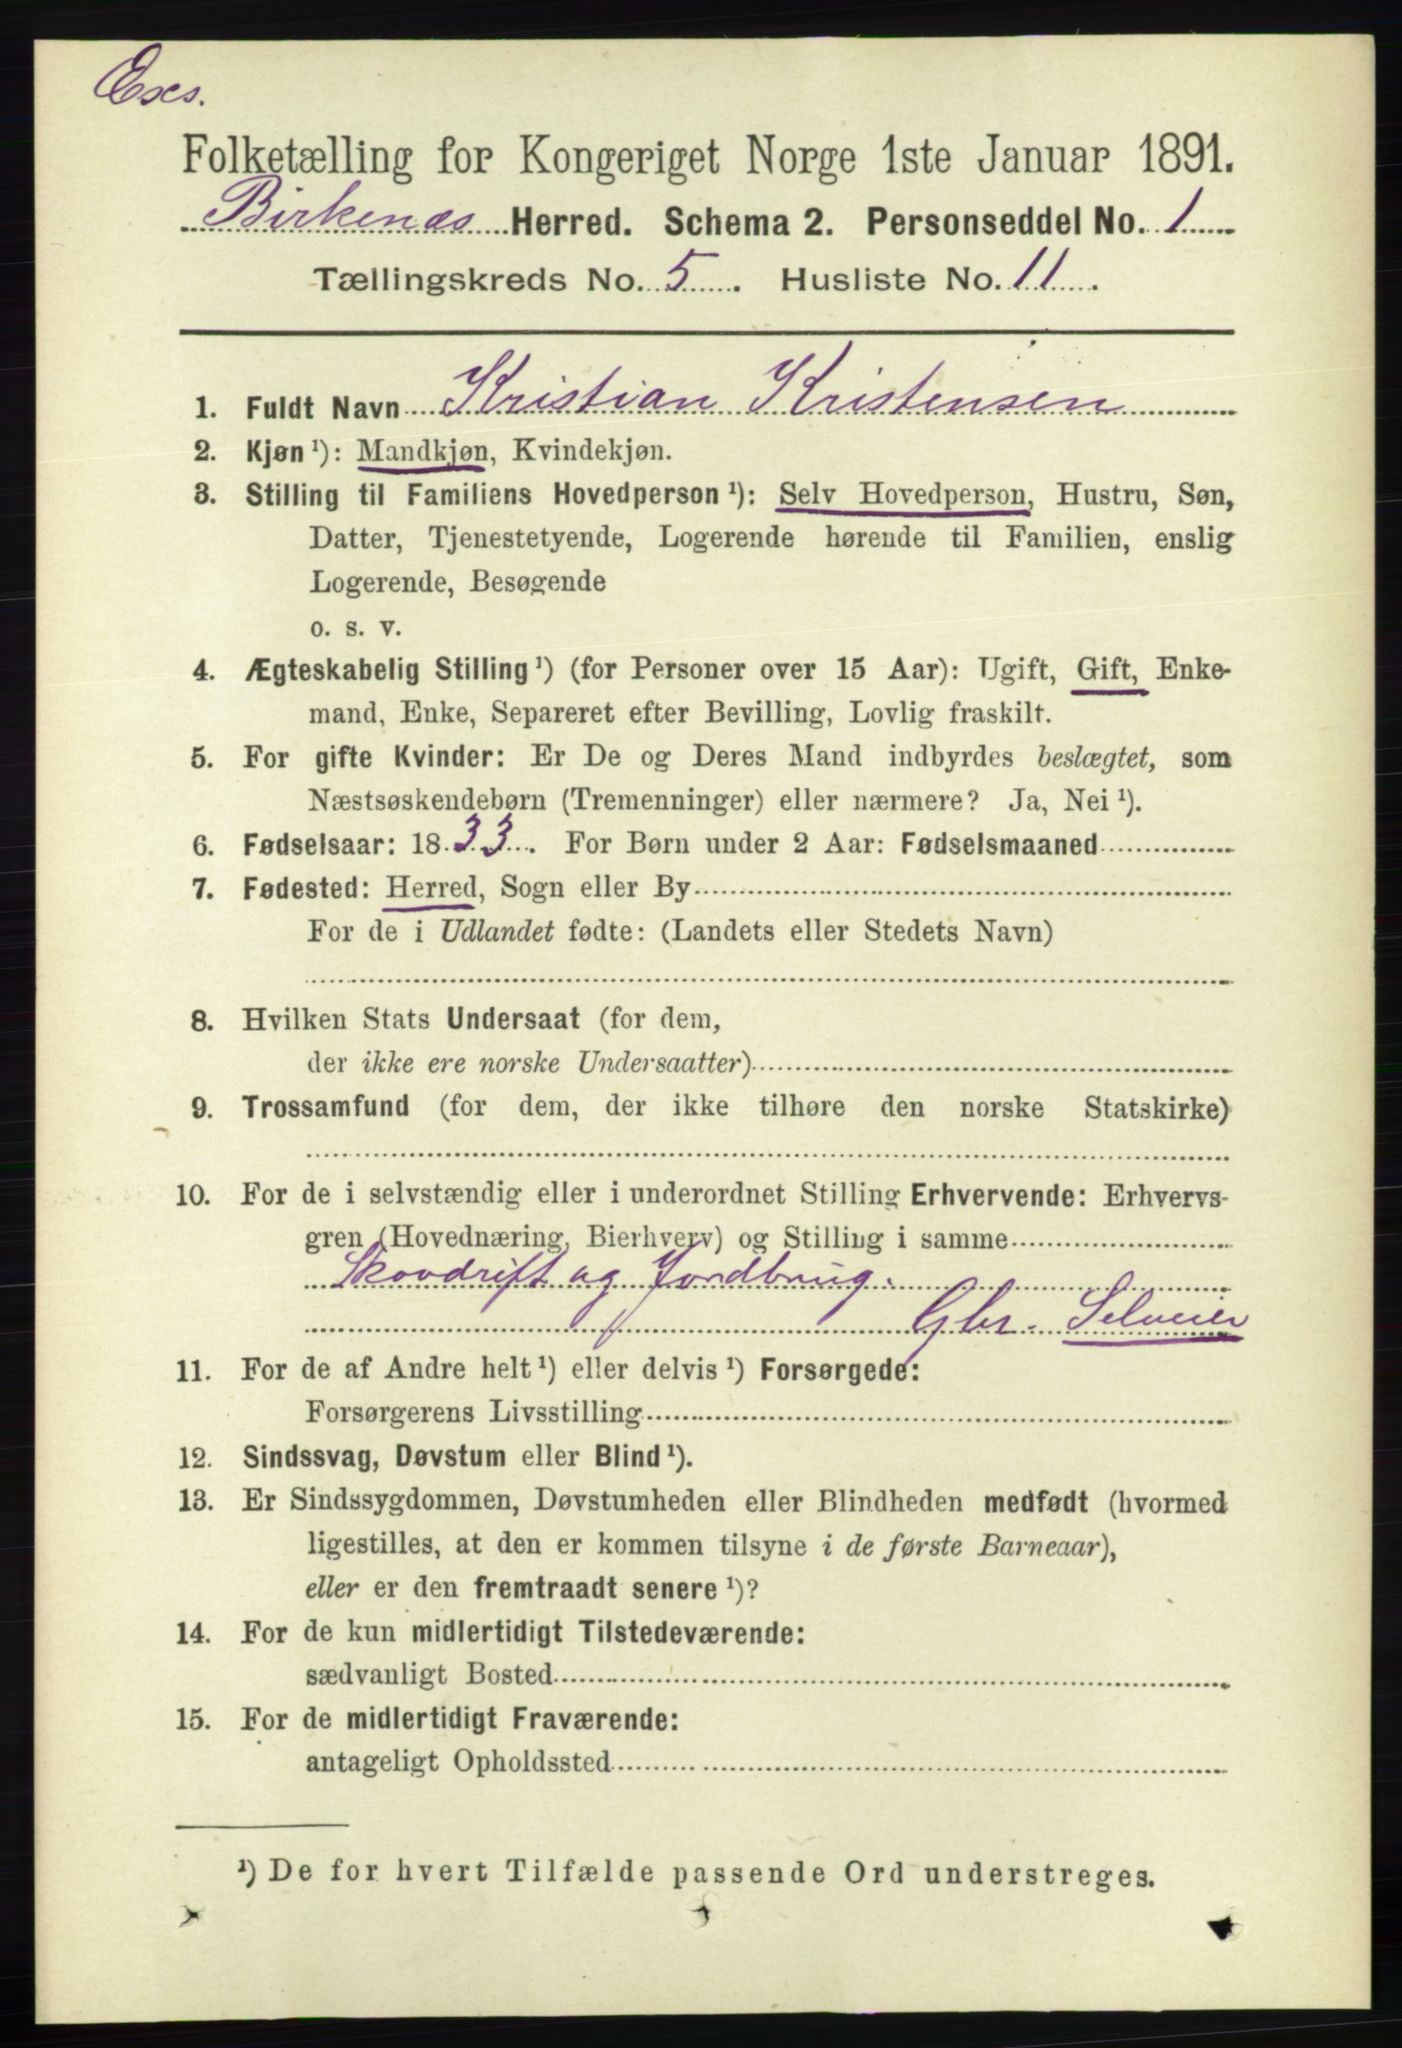 Exs.
Folketælling for Kongeriget Norge 1ste Januar 1891.
Birkenæs Herred. Schema 2. Personseddel No. 1
Tællingskreds No. 5. Husliste No. 11.
1. Fuldt Navn Kristian Kristensen
2. Kjøn ¹): Mandkjøn, Kvindekjøn.
3. Stilling til Familiens Hovedperson ¹): Selv Hovedperson, Hustru, Søn,
Datter, Tjenestetyende, Logerende hørende til Familien, enslig
Logerende, Besøgende
o. s. v.
4. Ægteskabelig Stilling ¹) (for Personer over 15 Aar): Ugift, Gift, Enke-
mand, Enke, Separeret efter Bevilling, Lovlig fraskilt.
5. For gifte Kvinder: Er De og Deres Mand indbyrdes beslægtet, som
Næstsøskendebørn (Tremenninger) eller nærmere? Ja, Nei ¹).
6. Fødselsaar: 1833. For Børn under 2 Aar: Fødselsmaaned
7. Fødested: Herred, Sogn eller By
For de i Udlandet fødte: (Landets eller Stedets Navn)
8. Hvilken Stats Undersaat (for dem,
der ikke ere norske Undersaatter)
9. Trossamfund (for dem, der ikke tilhøre den norske Statskirke)
10. For de i selvstændig eller i underordnet Stilling Erhvervende: Erhvervs-
gren (Hovednæring, Bierhverv) og Stilling i samme
Skovdrift og Jordbrug.
Gbr. Selveier
11. For de af Andre helt ¹) eller delvis ¹) Forsørgede:
Forsørgerens Livsstilling
12. Sindssvag, Døvstum eller Blind ¹).
13. Er Sindssygdommen, Døvstumheden eller Blindheden medfødt (hvormed
ligestilles, at den er kommen tilsyne i de første Barneaar),
eller er den fremtraadt senere ¹)?
14. For de kun midlertidigt Tilstedeværende:
sædvanligt Bosted
15. For de midlertidigt Fraværende:
antageligt Opholdssted
¹) De for hvert Tilfælde passende Ord understreges.